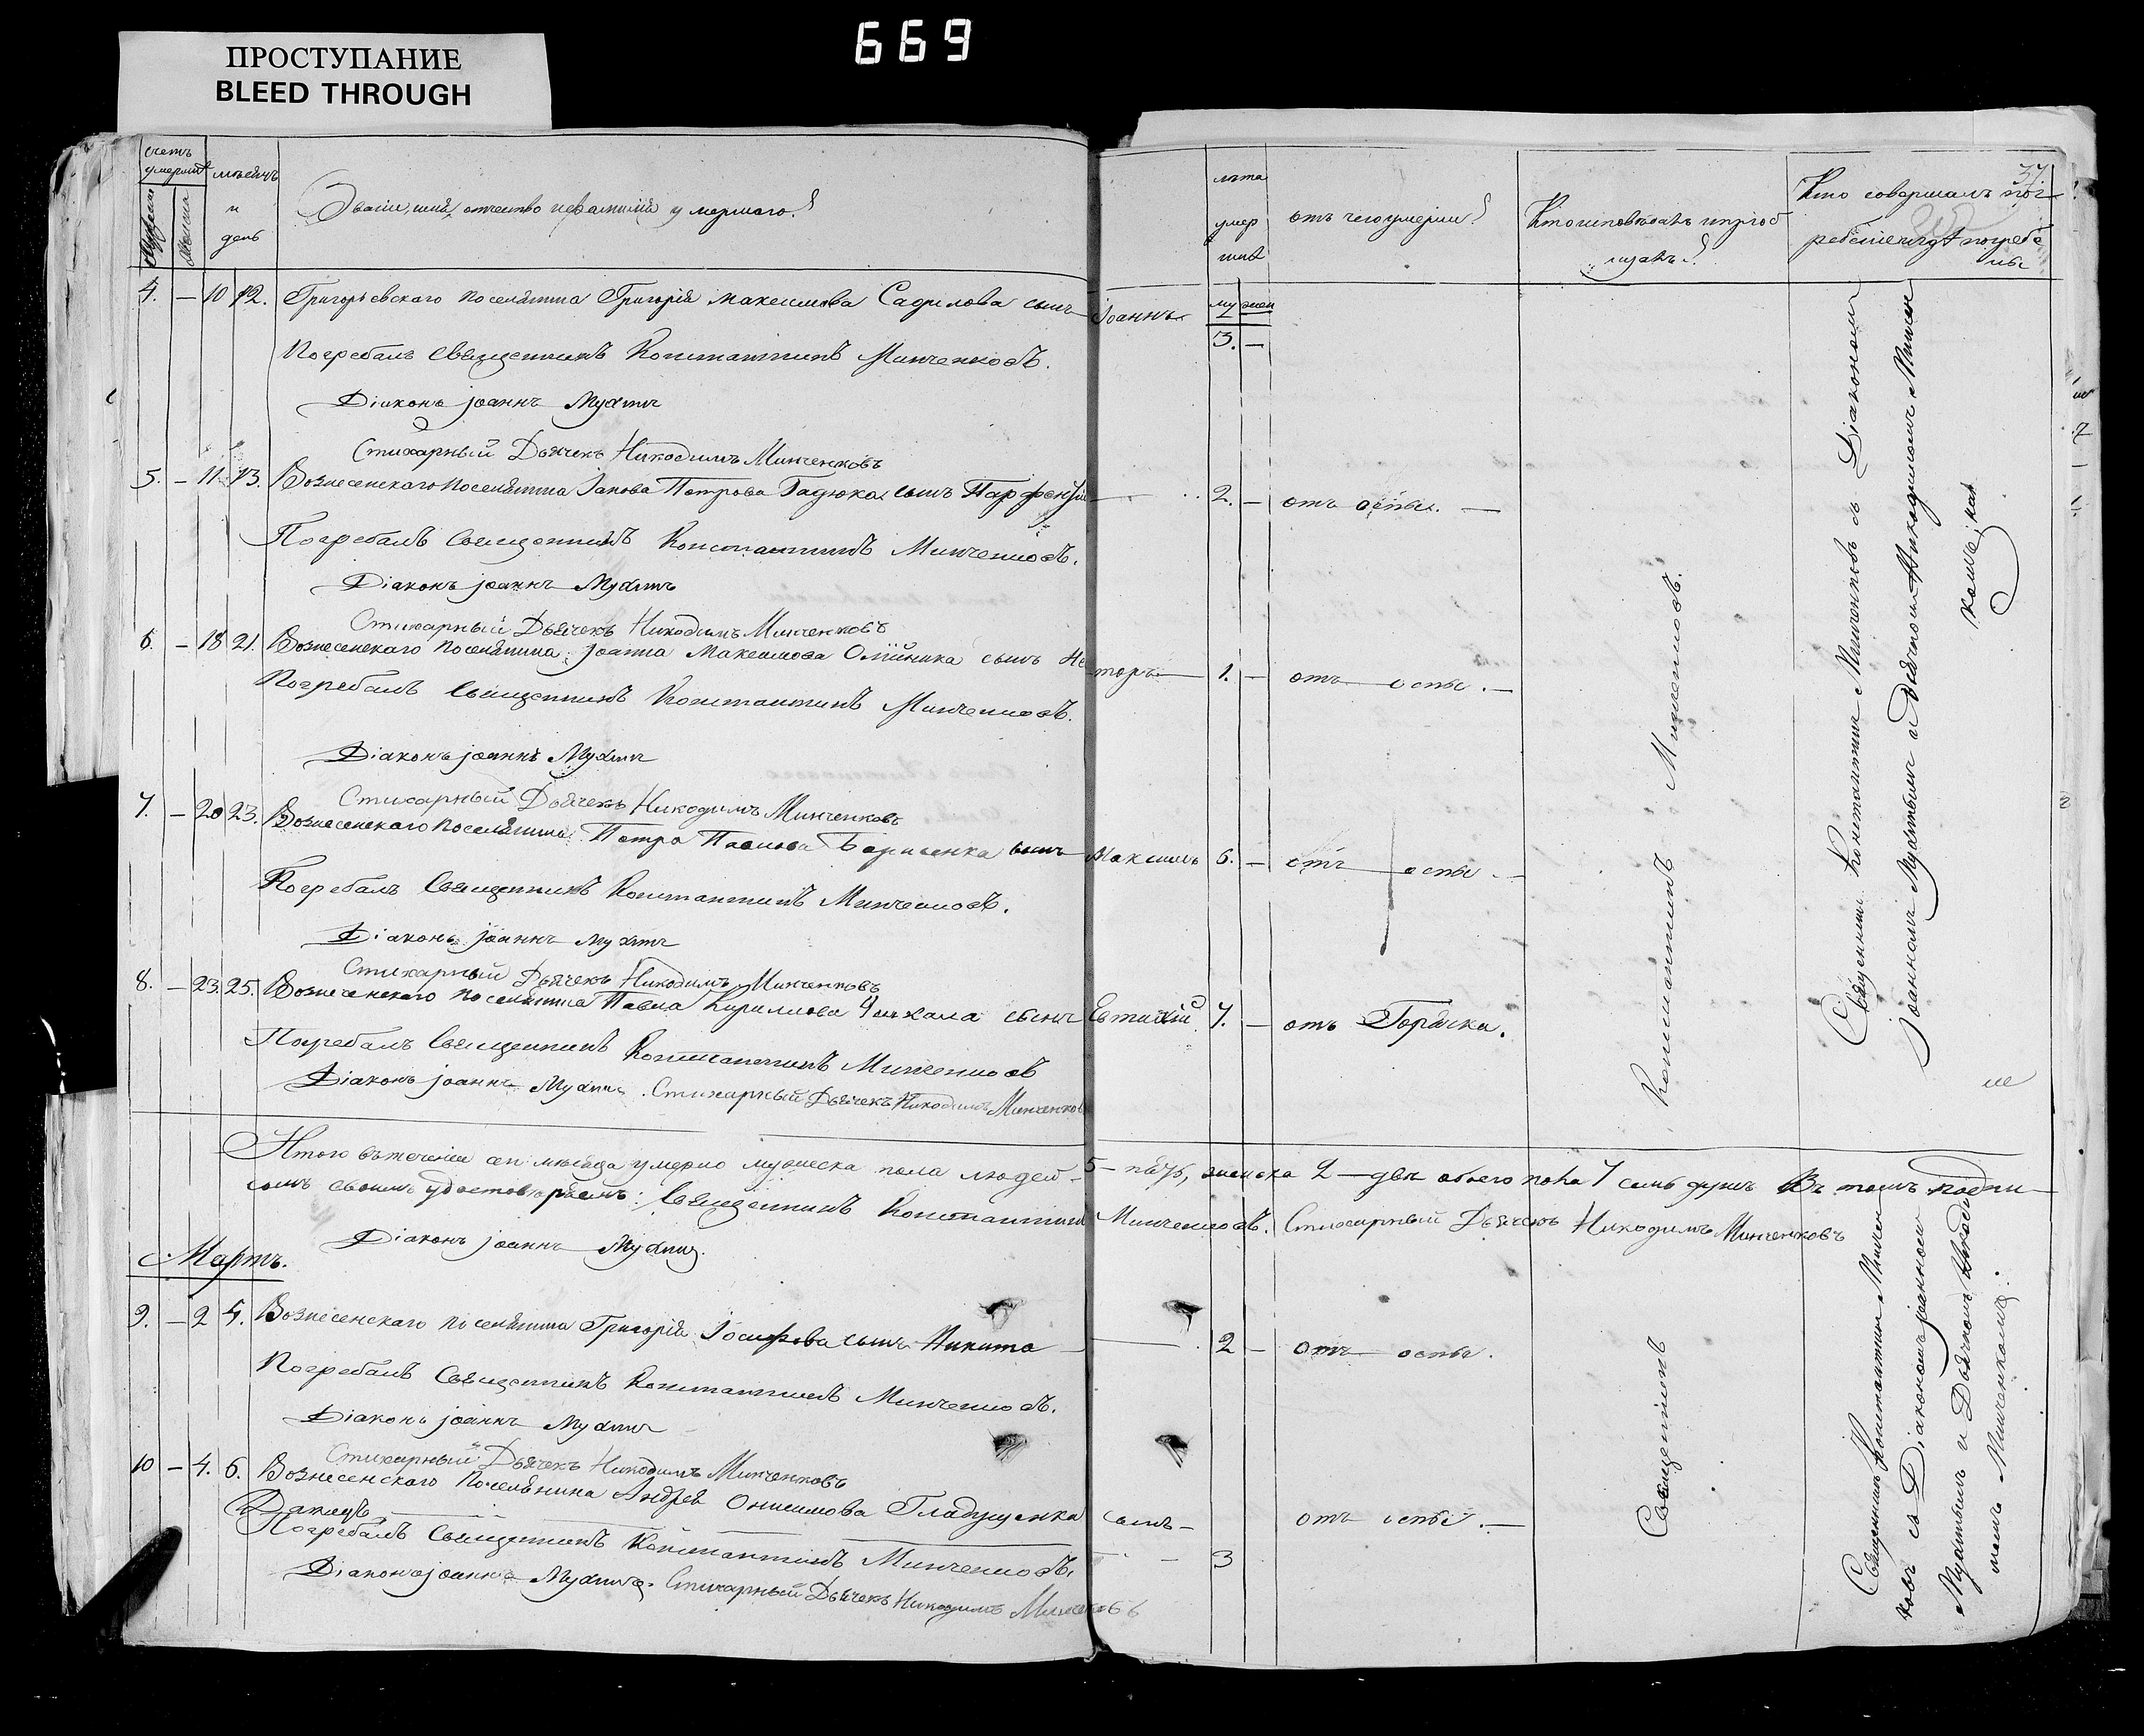 669
ПРОСТУПАНИЕ
BLEED THROUGH
счетъ умершихъ
мужеска
женска
мѣсяцъ и день
Званіе, имя, отчество и фамилія умершаго?
лѣта умершихъ
отъ чего умерли?
Кто исповѣдалъ и пріобщалъ?
Кто совершалъ погребеніе и гдѣ погребены
37
му жен
4. — 10 12. Григорьевскаго поселянина Григорія Максимова Садилова сынъ Іоаннъ 3. —
Погребалъ священникъ Константинъ Минченковъ.
Діаконъ Іоаннъ Мухинъ
Стихарный Дьячекъ Никодимъ Минченковъ
5. — 11 13. Вознесенскаго поселянина Іакова Петрова Гадюка сынъ Парфеній 2. — отъ оспы. —
Погребалъ Священникъ Константинъ Минченковъ.
Діаконъ Іоаннъ Мухинъ
Стихарный Дьячекъ Никодимъ Минченковъ
6. — 18 21. Вознесенскаго поселянина Іоанна Максимова Олійника сынъ Несторъ 1. — отъ оспы. —
Погребалъ Священникъ Константинъ Минченковъ.
Діаконъ Іоаннъ Мухинъ
Стихарный Дьячекъ Никодимъ Минченковъ
7. — 20 23. Вознесенскаго поселянина Петра Павлова Борисенка сынъ Максимъ 6. — отъ оспы. —
Погребалъ Священникъ Константинъ Минченковъ.
Діаконъ Іоаннъ Мухинъ
Стихарный Дьячекъ Никодимъ Минченковъ
8. — 23. 25. Вознесенскаго поселянина Павла Кирилова сынъ Евтихій 7. — отъ Горячка.
Погребалъ Священникъ Константинъ Минченковъ
Діаконъ Іоаннъ Мухинъ. Стихарный Дьячекъ Никодимъ Минченковъ
Константинъ Минченковъ.
Священникъ Константинъ Минченковъ съ Діакономъ
Іоанномъ Мухинымъ и Дьячкомъ Никодимомъ Минченковымъ
Итого въ теченіи сего мѣсяца умерло мужеска пола людей 5 — пять, женска 2 — двѣ обоего пола 7 семь душъ Въ томъ подпи-
сомъ своимъ удостовѣряемъ: Священникъ Константинъ Минченковъ. Стихарный Дьячекъ Никодимъ Минченковъ
Діаконъ Іоаннъ Мухинъ.
Мартъ.
9. — 2 4. Вознесенскаго поселянина Григорія Іосифова сынъ Никита 2 — отъ оспы.
Погребалъ Священникъ Константинъ Минченковъ.
Діаконъ Іоаннъ Мухинъ
Стихарный Дьячекъ Никодимъ Минченковъ
10 — 4. 6. Вознесенскаго поселянина Андрея Онисимова Гладушенка сынъ — отъ оспы. —
3
Погребалъ Священникъ Константинъ Минченковъ.
Діаконъ Іоаннъ Мухинъ. Стихарный Дьячекъ Никодимъ Минченковъ
Священникъ
Священникъ Константинъ Минчен
ковъ съ Діакономъ Іоанномъ
Мухинымъ и Дьячкомъ Никоди
момъ Минченковымъ.